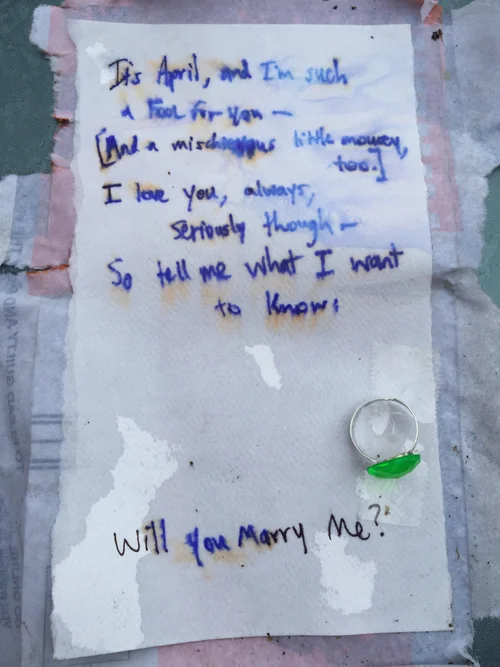 It's April, and I'm such
a Fool for you —
[And a mischievous little monkey,
too.]
I love you, always,
seriously though —
So tell me what I want
to know:
Will you Marry Me?